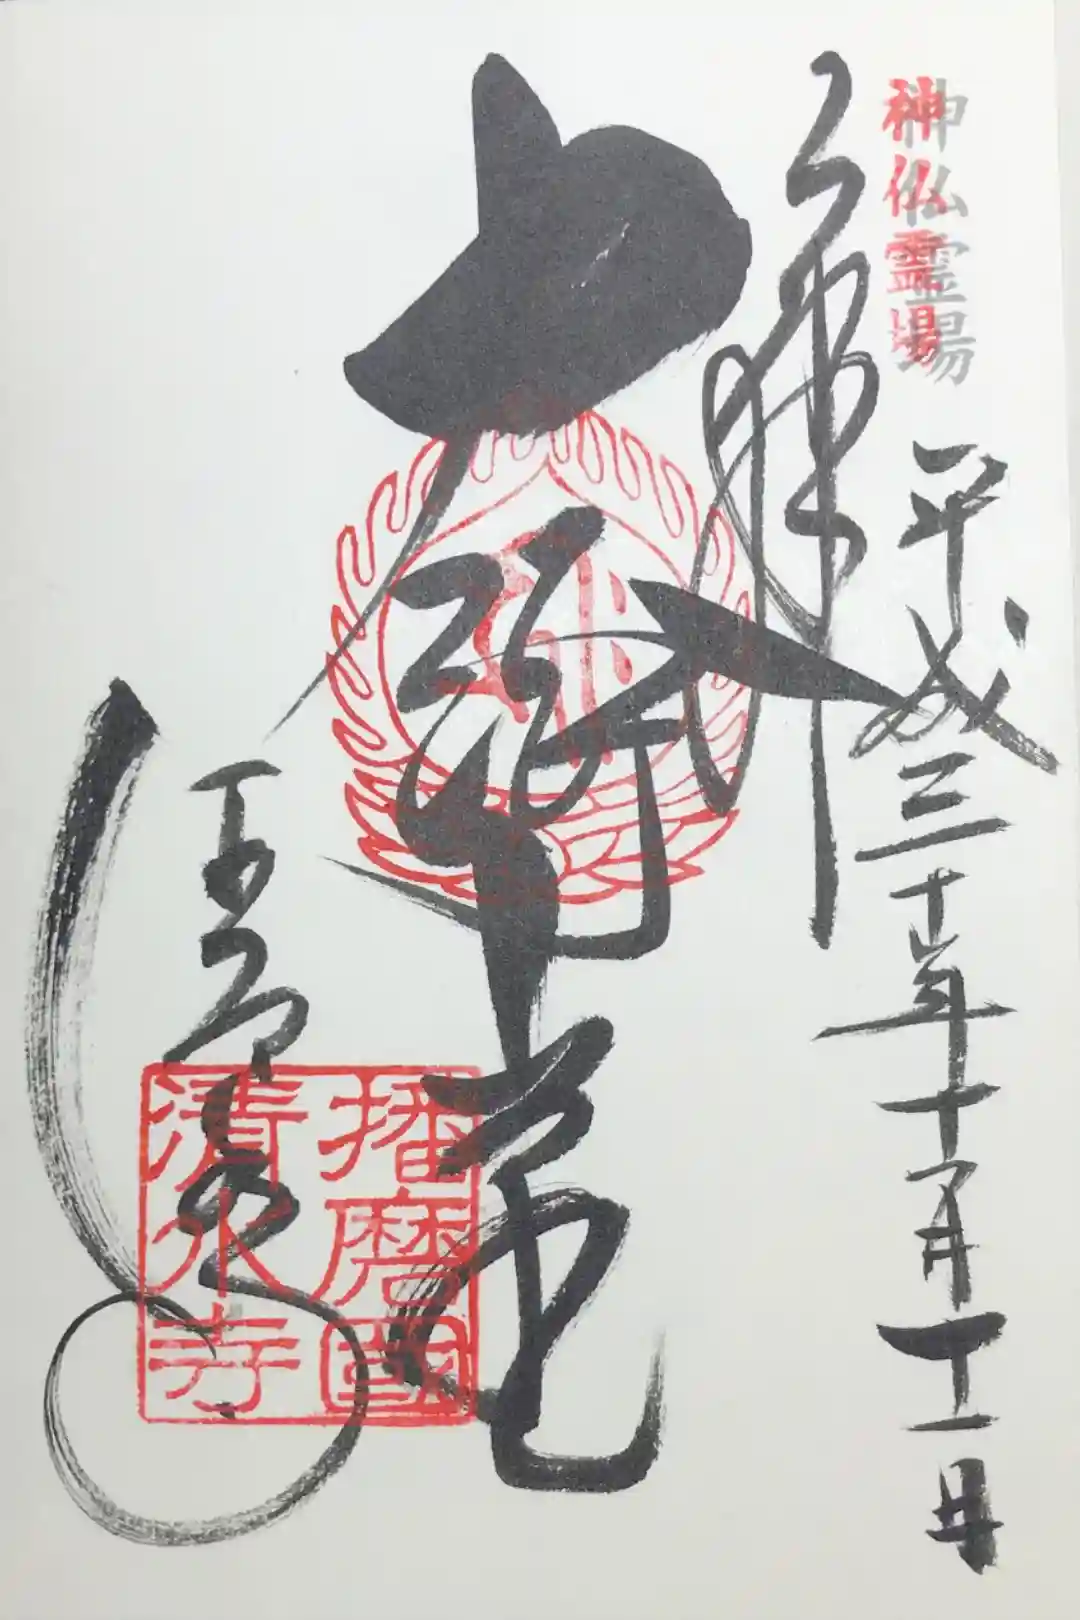 神仏霊場
奉拝
平成三十年十月十一日
大講堂
播磨國
清水寺